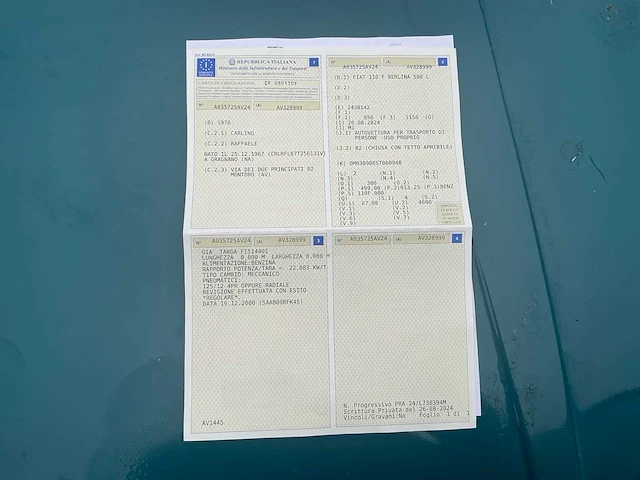 REPUBBLICA ITALIANA
1
Ministero delle Infrastrutture e dei Trasporti
CARTA DI CIRCOLAZIONE
N° A035725AV24 (A) AV328999
(B) 1970
(C.2.1) CARLINO
(C.2.2) RAFFAELE
NATO IL 25.12.1967
A GRAGNANO (NA)
(C.2.3) VIA DEI DUE PRINCIPATI 82
MONTORO (AV)
2
A035725AV24 AV328999
(D.1) FIAT 110 F BERLINA 500 L
(D.2)
(D.3)
(E) 2438142
(F.1)
(F.2) 850 (F.3) 1150 (G)
(I) 26.08.2024
(J) M1
(J.1) AUTOVETTURA PER TRASPORTO DI
PERSONE -USO PROPRIO
(J.2) B2 (CHIUSA CON TETTO APRIBILE)
(K) 0M03090EST06094B
(L) 2 (N.1) (N.2)
(N.3) (N.4) (N.5)
(O.1) 300 (O.2)
(P.1) 499.00 (P.2)013.25 (P.3)BENZ
(P.5) 110F.000
(Q) (S.1) 4 (S.2)
(U.1) 87.00 (U.2) 4600
(V.1) (V.2)
(V.3) (V.5)
(V.6) (V.7)
(V.9)
N° A035725AV24 (A) AV328999 3
GIA' TARGA FI514401
LUNGHEZZA 0,000 M LARGHEZZA 0,000 M
ALIMENTAZIONE:BENZINA
RAPPORTO POTENZA/TARA = 22.083 KW/T
TIPO CAMBIO: MECCANICO
PNEUMATICI:
125/12 4PR OPPURE RADIALE
REVISIONE EFFETTUATA CON ESITO
*REGOLARE*
DATA 19.12.2000 (SAAB08BFK45)
AV1445
N° A035725AV24 (A) AV328999 4
N. Progressivo PRA 24/L730394M
Scrittura Privata del 26-08-2024
Vincoli/Gravami:No Foglio 1 di 1